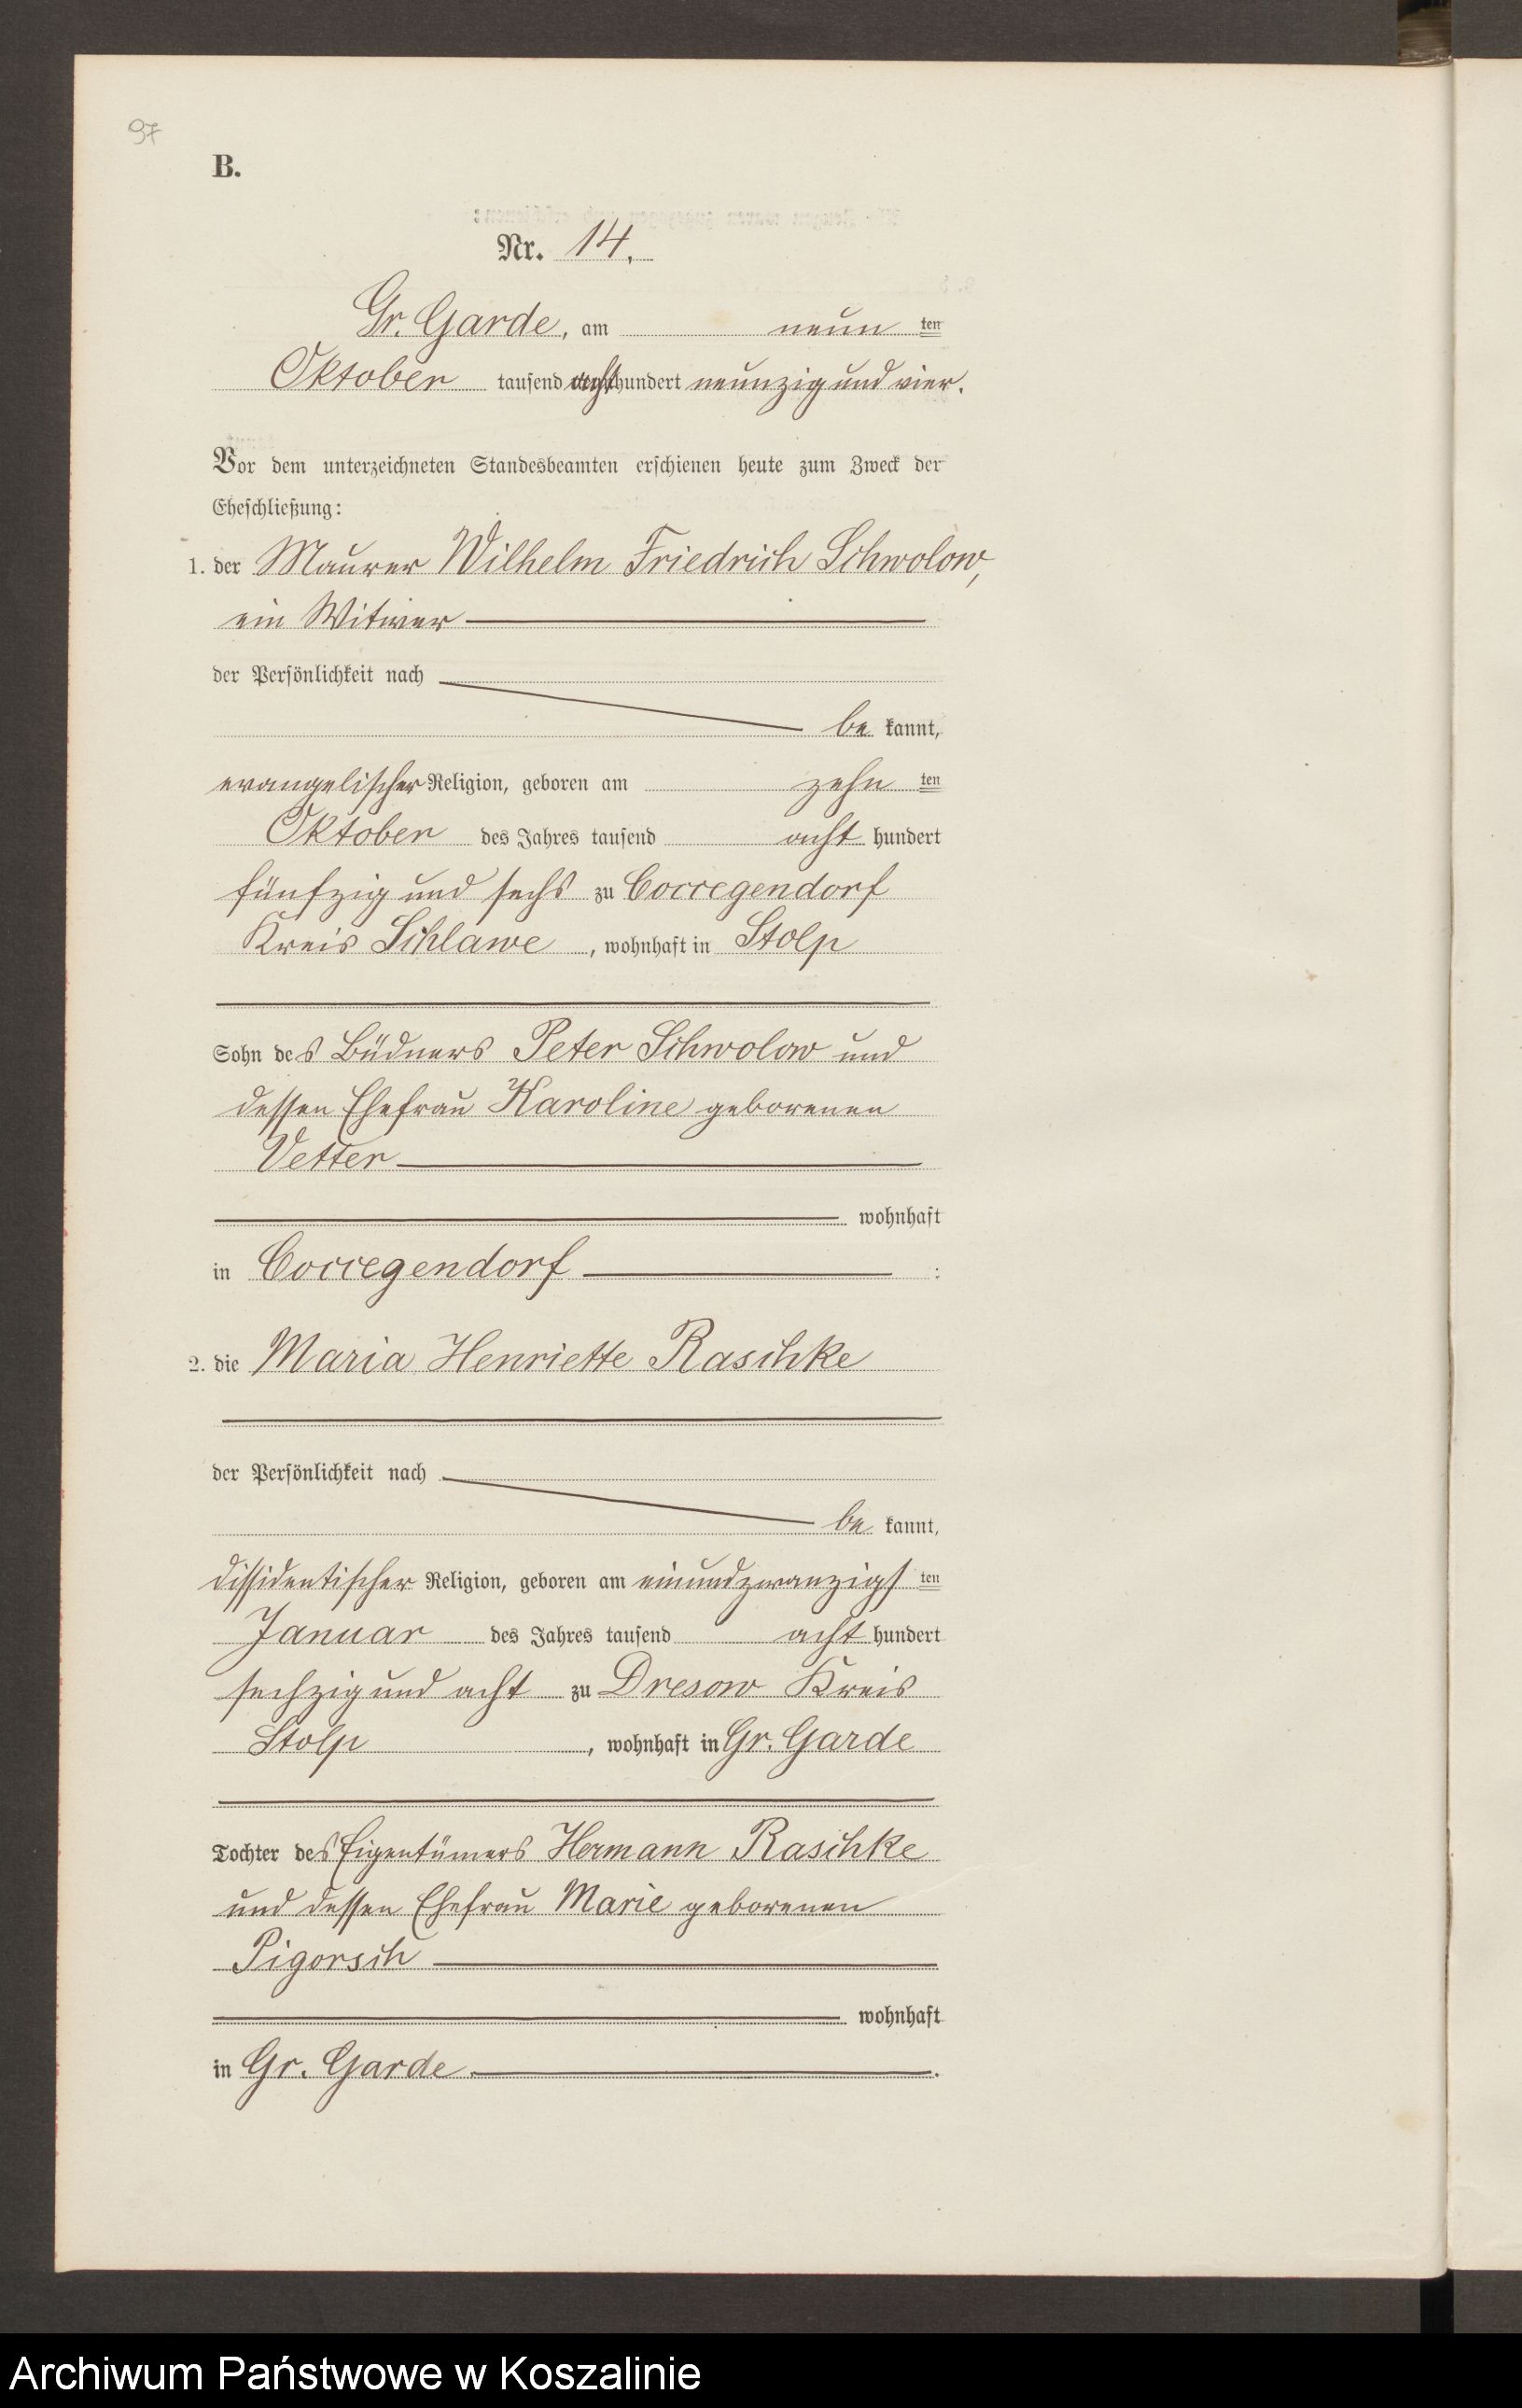 97
B.
Nr. 14.
Gr. Garde, am neun ten
Oktober tausend acht hundert neunzig und vier.
Vor dem unterzeichneten Standesbeamten erschienen heute zum Zweck der
Eheschließung:
1. der Maurer Wilhelm Friedrich Schwolow,
ein Witwer
der Persönlichkeit nach
be kannt,
evangelischer Religion, geboren am zehn ten
Oktober des Jahres tausend acht hundert
fünfzig und sechs zu Coccegendorf
Kreis Schlawe, wohnhaft in Stolp
Sohn des Büdners Peter Schwolow und
dessen Ehefrau Karoline geborenen
Vetter
wohnhaft
in Coccegendorf :
2. die Maria Henriette Raschke
der Persönlichkeit nach
be kannt,
dissidentischer Religion, geboren am einundzwanzigs ten
Januar des Jahres tausend acht hundert
sechzig und acht zu Dresow Kreis
Stolp, wohnhaft in Gr. Garde
Tochter des Eigentümers Hermann Raschke
und dessen Ehefrau Marie geborenen
Pigorsch
wohnhaft
in Gr. Garde.
Archiwum Państwowe w Koszalinie